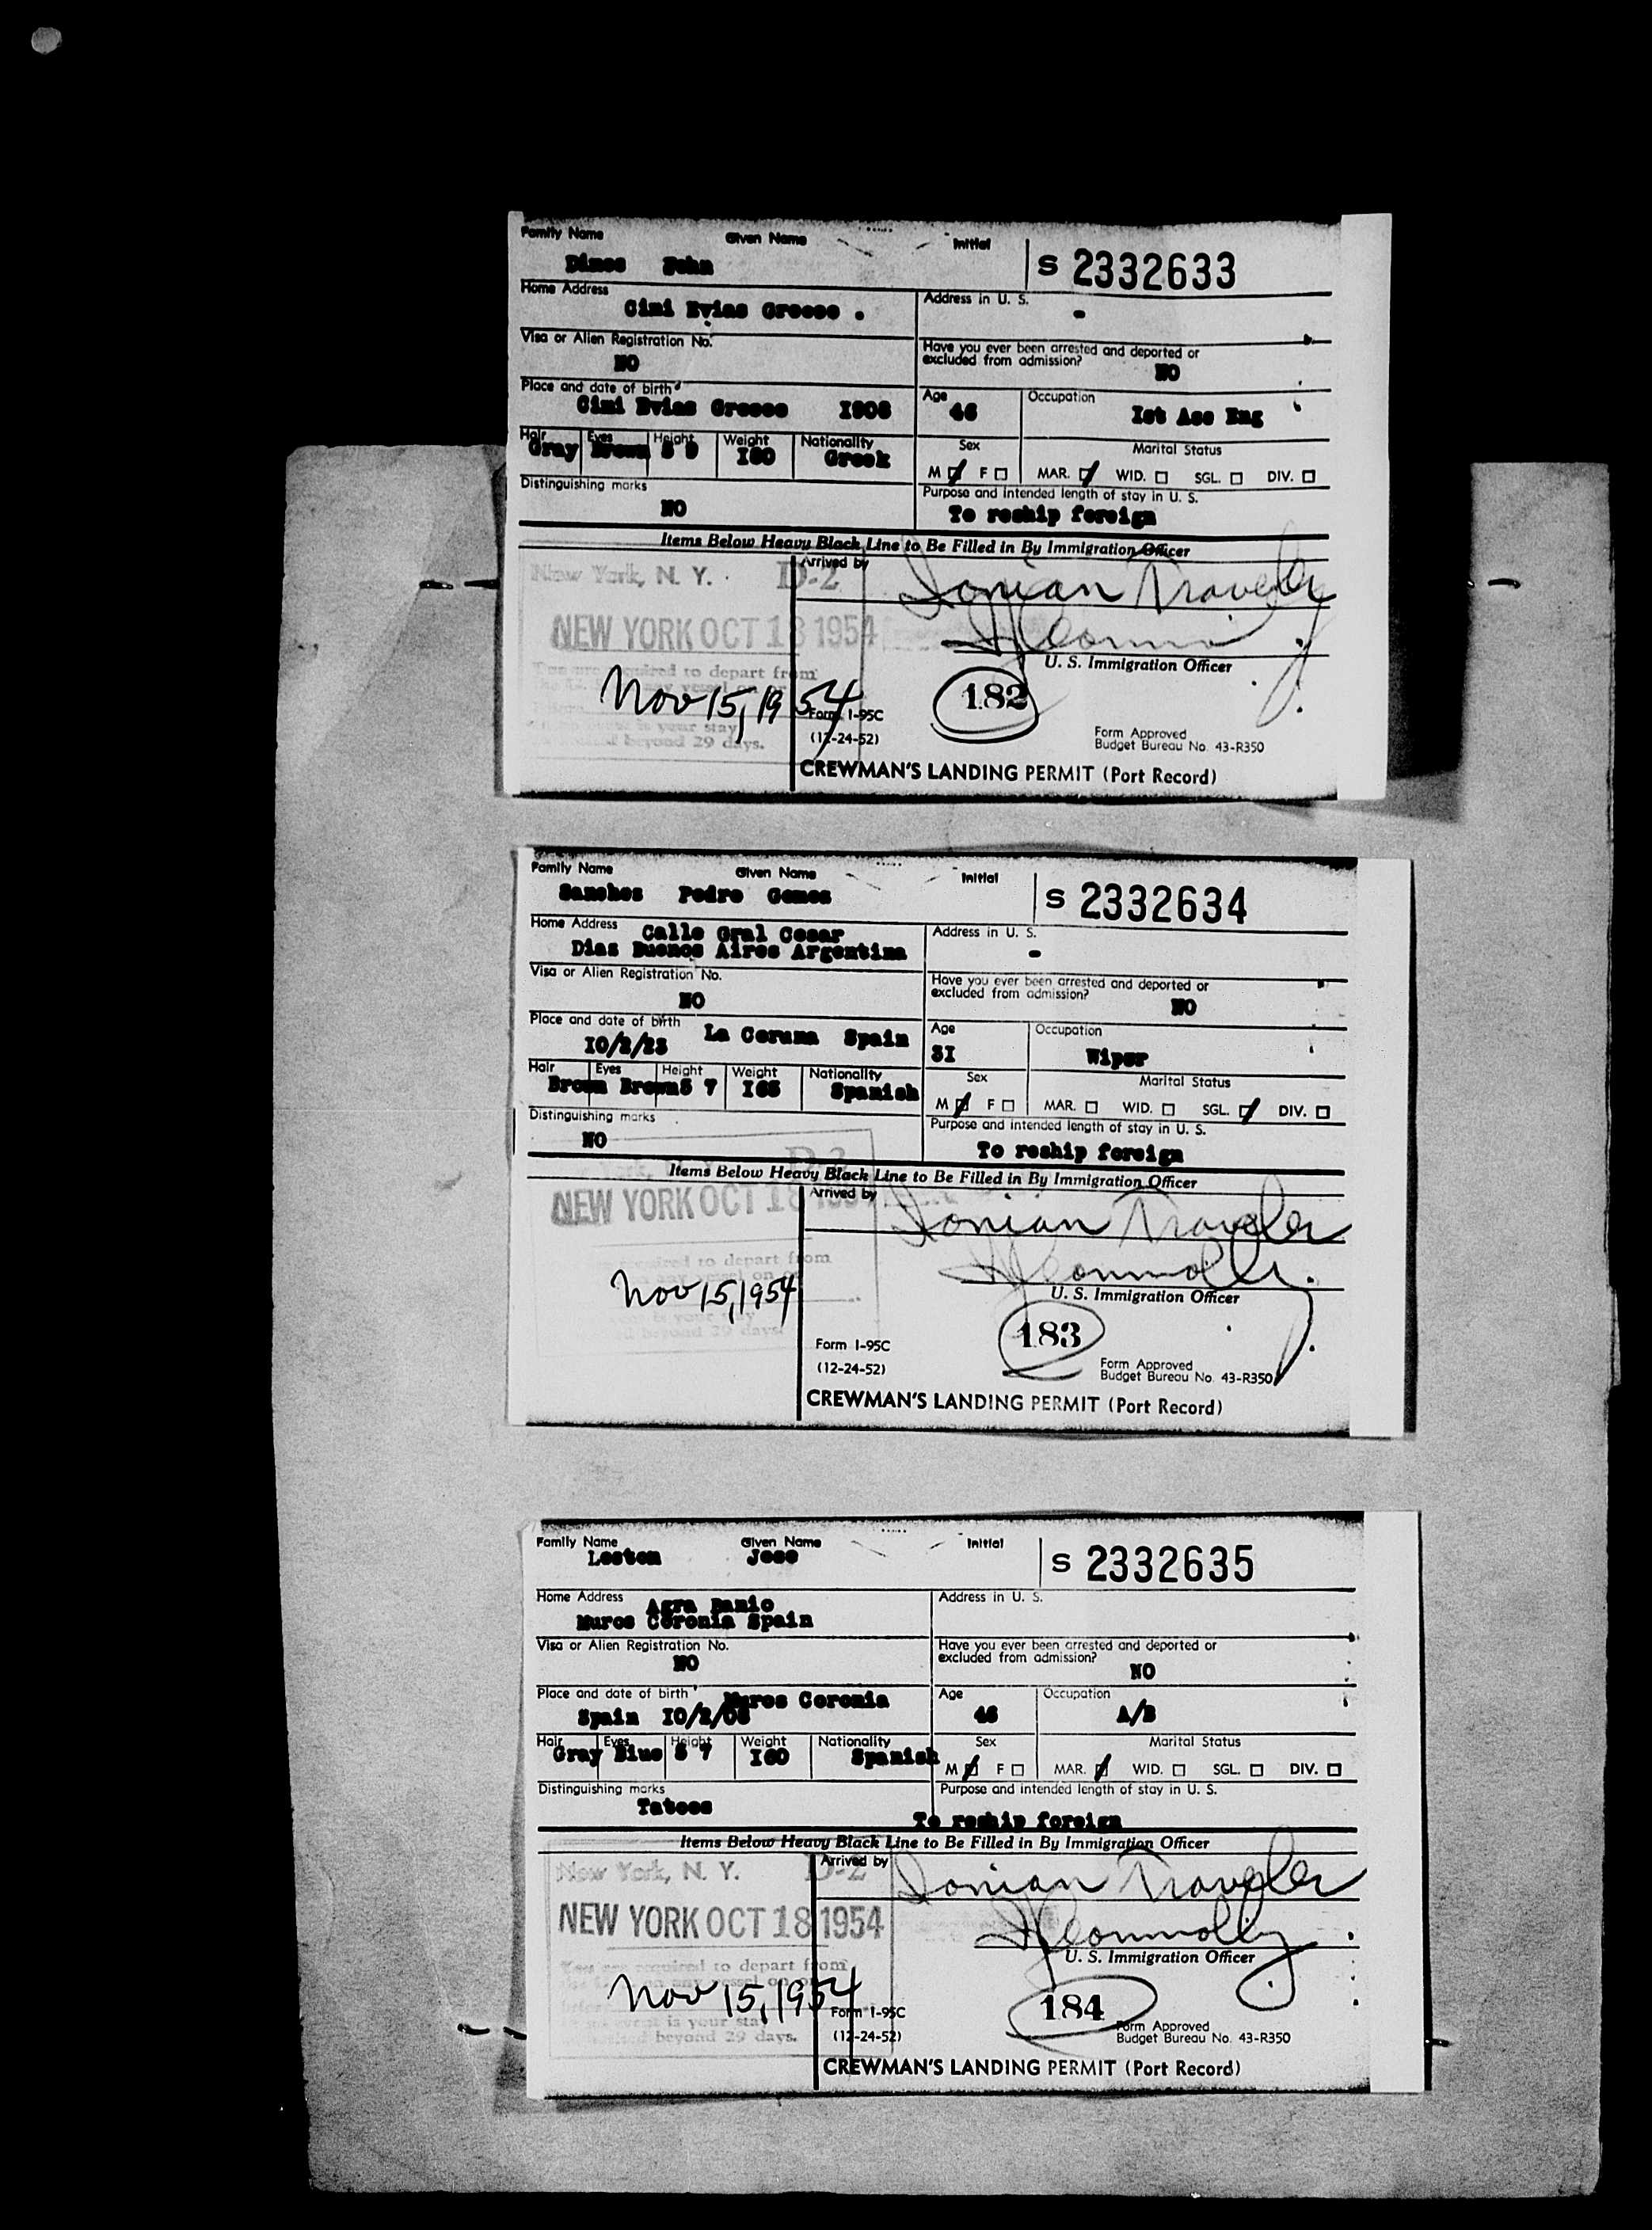 Family Name Given Name Initial S 2332633
Dimos John
Home Address Address in U. S.
Cimi Evias Greece . -
Visa or Alien Registration No. Have you ever been arrested and deported or
excluded from admission?
NO NO
Place and date of birth Age Occupation
Cimi Evias Greece I908 46 Ist Ass Eng
Hair Eyes Height Weight Nationality Sex Marital Status
Gray Brown 5 9 I80 Greek
M F MAR. WID. SGL. DIV.
Distinguishing marks Purpose and intended length of stay in U. S.
NO To reship foreign
Items Below Heavy Black Line to Be Filled in By Immigration Officer
New York, N. Y. D-2 Arrived by Ionian Traveler
NEW YORK OCT 18 1954
U. S. Immigration Officer
required to depart from
Nov 15, 1954 182
Form I-95C
is your stay
(12-24-52) Form Approved
beyond 29 days. Budget Bureau No. 43-R350
CREWMAN'S LANDING PERMIT (Port Record)
Family Name Given Name Initial S 2332634
Sanches Pedro Gomes
Home Address Calle Gral Cesar Address in U. S.
Dias Buenos Aires Argentina -
Visa or Alien Registration No. Have you ever been arrested and deported or
excluded from admission?
NO NO
Place and date of birth La Coruna Spain Age Occupation
10/2/23 3I Wiper
Hair Eyes Height Weight Nationality Sex Marital Status
Brown Brown 5 7 I65 Spanish
M F MAR. WID. SGL. DIV.
Distinguishing marks Purpose and intended length of stay in U. S.
NO To reship foreign
Items Below Heavy Black Line to Be Filled in By Immigration Officer
NEW YORK OCT 18 1954 Arrived by Ionian Traveler
Connolly
required to depart from
U. S. Immigration Officer
Nov 15, 1954 183
beyond 29 days.
Form I-95C
(12-24-52) Form Approved
Budget Bureau No. 43-R350
CREWMAN'S LANDING PERMIT (Port Record)
Family Name Given Name Initial S 2332635
Leston Jose
Home Address Agra Panio Address in U. S.
Muros Coronia Spain
Visa or Alien Registration No. Have you ever been arrested and deported or
excluded from admission?
NO NO
Place and date of birth Muros Coronia Age Occupation
Spain I0/2/08 46 A/B
Hair Eyes Height Weight Nationality Sex Marital Status
Gray Blue 5 7 I60 Spanish
M F MAR. WID. SGL. DIV.
Distinguishing marks Purpose and intended length of stay in U. S.
Tatoos To reship foreign
Items Below Heavy Black Line to Be Filled in By Immigration Officer
New York, N. Y. D-2 Arrived by Ionian Traveler
NEW YORK OCT 18 1954 Connolly
U. S. Immigration Officer
You are required to depart from
any vessel on or
Nov 15, 1954 184
Form I-95C
event is your stay Form Approved
beyond 29 days. (12-24-52) Budget Bureau No. 43-R350
CREWMAN'S LANDING PERMIT (Port Record)